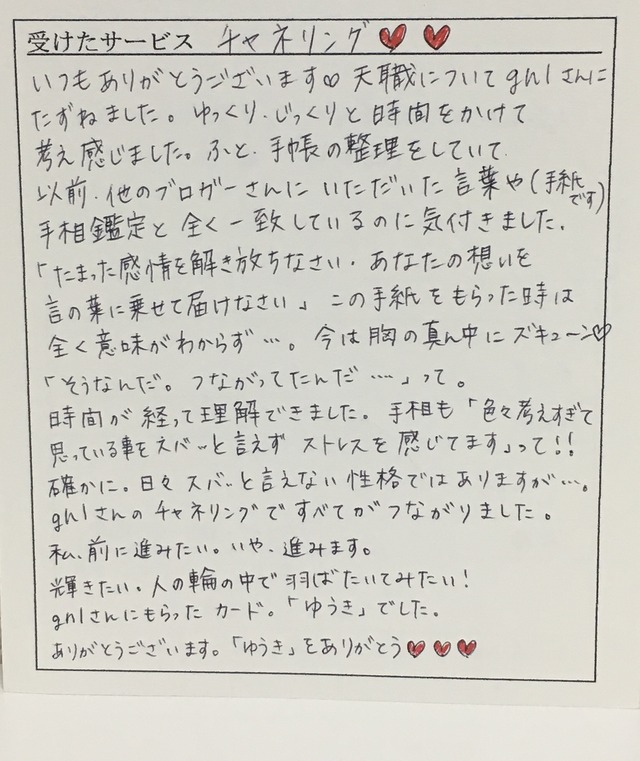 受けたサービス チャネリング♥♥
いつもありがとうございます♡ 天職についてgnlさんに
たずねました。ゆっくり、じっくりと時間をかけて
考え感じました。ふと、手帳の整理をしていて、
以前、他のブロガーさんにいただいた言葉や(手紙です)
手相鑑定と全く一致しているのに気付きました。
「たまった感情を解き放ちなさい・あなたの想いを
言の葉に乗せて届けなさい」この手紙をもらった時は
全く意味がわからず…。今は胸の真ん中にズキューン♡
「そうなんだ。つながってたんだ……」って。
時間が経って理解できました。手相も「色々考えすぎて
思っている事をズバッと言えずストレスを感じてます」って!!
確かに。日々ズバッと言えない性格ではありますが…。
gnlさんのチャネリングですべてがつながりました。
私、前に進みたい。いや、進みます。
輝きたい、人の輪の中で羽ばたいてみたい!
gnlさんにもらったカード。「ゆうき」でした。
ありがとうございます。「ゆうき」をありがとう♥♥♥